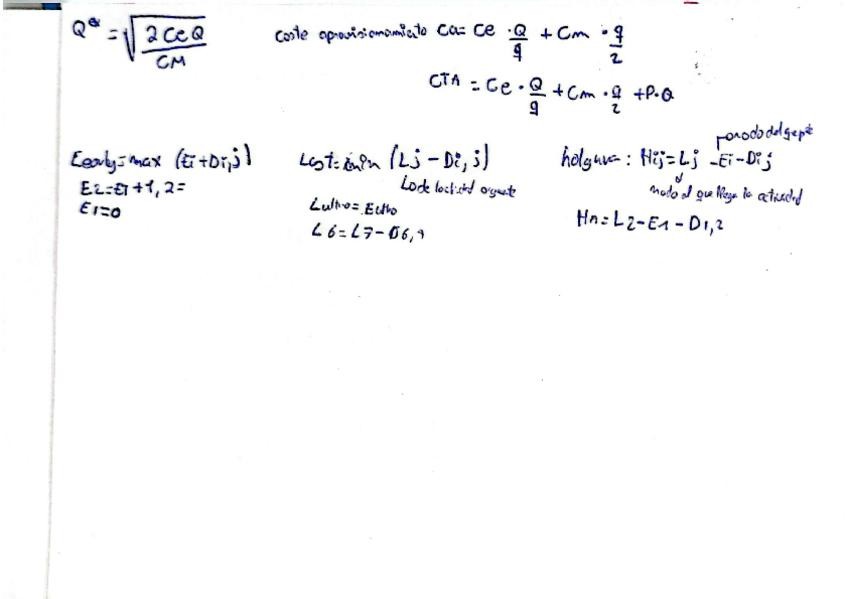 Q* = √(2CeQ / CM)
Coste aprovisionamiento Ca = Ce · Q/q + Cm · q/2
CTA = Ce · Q/q + Cm · q/2 + P·Q
Eearly = max (Ei + Di,j)
E2 = E1 + 1,2 =
E1 = 0
Last = min (Lj - Di,j)
Lo de la actividad siguiente
Lultimo = Eultimo
L6 = L7 - D6,7
holgura : Hij = Lj - Ei - Dij
nodo al que llega la actividad
Hn = L2 - E1 - D1,2